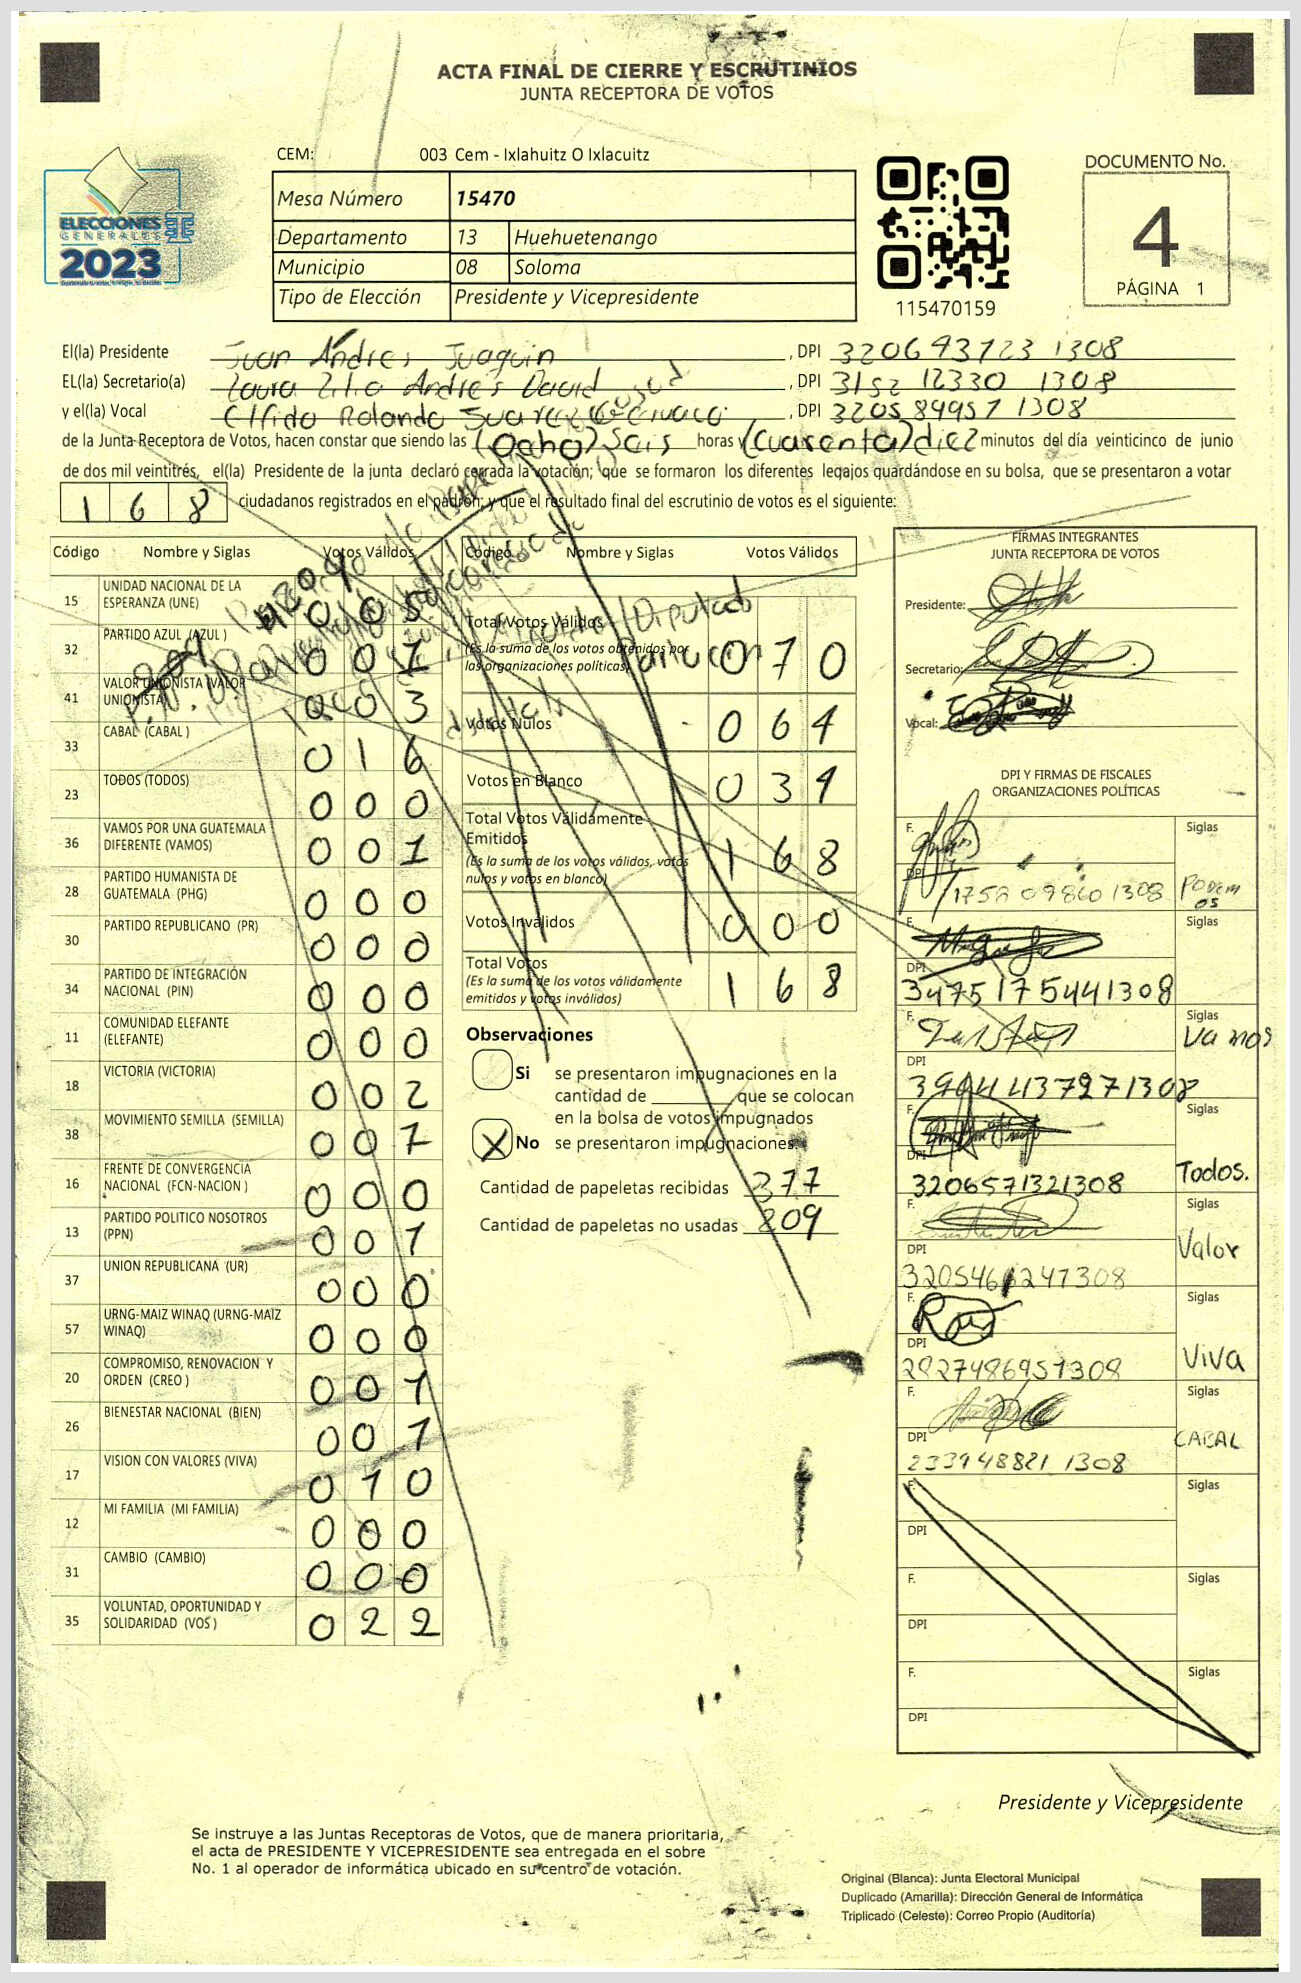 ACTA FINAL DE CIERRE Y ESCRUTINIOS
JUNTA RECEPTORA DE VOTOS
CEM: 003 Cem - Ixlahuitz O Ixlacuitz
ELECCIONES
GENERALES
2023
Mesa Número 15470
Departamento 13 Huehuetenango
Municipio 08 Soloma
Tipo de Elección Presidente y Vicepresidente
115470159
DOCUMENTO No.
4
PÁGINA 1
El(la) Presidente Juan Andres Juaquin , DPI
EL(la) Secretario(a) Laura Andrés David , DPI 3152 12330 1308
y el(la) Vocal Elfido Rolando Suarez , DPI 3205 84957 1308
de la Junta Receptora de Votos, hacen constar que siendo las (ocho) Seis horas y (cuarenta) diez minutos del día veinticinco de junio
de dos mil veintitrés, el(la) Presidente de la junta declaró cerrada la votación; que se formaron los diferentes legajos guardándose en su bolsa, que se presentaron a votar
168 ciudadanos registrados en el padrón; y que el resultado final del escrutinio de votos es el siguiente:
Código Nombre y Siglas Votos Válidos
15 UNIDAD NACIONAL DE LA
ESPERANZA (UNE) 005
32 PARTIDO AZUL (AZUL ) 001
41 VALOR UNIONISTA (VALOR
UNIONISTA) 003
33 CABAL (CABAL ) 016
23 TODOS (TODOS) 000
36 VAMOS POR UNA GUATEMALA
DIFERENTE (VAMOS) 001
28 PARTIDO HUMANISTA DE
GUATEMALA (PHG) 000
30 PARTIDO REPUBLICANO (PR) 000
34 PARTIDO DE INTEGRACIÓN
NACIONAL (PIN) 000
11 COMUNIDAD ELEFANTE
(ELEFANTE) 000
18 VICTORIA (VICTORIA) 002
38 MOVIMIENTO SEMILLA (SEMILLA) 007
16 FRENTE DE CONVERGENCIA
NACIONAL (FCN-NACION ) 000
13 PARTIDO POLITICO NOSOTROS
(PPN) 001
37 UNION REPUBLICANA (UR) 000
57 URNG-MAIZ WINAQ (URNG-MAIZ
WINAQ) 000
20 COMPROMISO, RENOVACION Y
ORDEN (CREO ) 001
26 BIENESTAR NACIONAL (BIEN) 001
17 VISION CON VALORES (VIVA) 010
12 MI FAMILIA (MI FAMILIA) 000
31 CAMBIO (CAMBIO) 000
35 VOLUNTAD, OPORTUNIDAD Y
SOLIDARIDAD (VOS ) 022
Código Nombre y Siglas Votos Válidos
Total Votos Válidos
(Es la suma de los votos obtenidos por
las organizaciones políticas) 070
Votos Nulos 064
Votos en Blanco 034
Total Votos Válidamente
Emitidos
(Es la suma de los votos válidos, votos
nulos y votos en blanco) 168
Votos Inválidos 000
Total Votos
(Es la suma de los votos válidamente
emitidos y votos inválidos) 168
Observaciones
Si se presentaron impugnaciones en la
cantidad de ________ que se colocan
en la bolsa de votos impugnados
X No se presentaron impugnaciones.
Cantidad de papeletas recibidas 377
Cantidad de papeletas no usadas 209
FIRMAS INTEGRANTES
JUNTA RECEPTORA DE VOTOS
Presidente:
Secretario:
Vocal:
DPI Y FIRMAS DE FISCALES
ORGANIZACIONES POLÍTICAS
F. Siglas
DPI 1752 09860 1308 Podemos
F. Siglas
DPI 3475175441308
F. Siglas
Vamos
DPI 3904437271308
F. Siglas
DPI 3206571321308 Todos.
F. Siglas
DPI Valor
F. Siglas
DPI 2827486951308 Viva
F. Siglas
DPI 233948821 1308 CABAL
F. Siglas
DPI
F. Siglas
DPI
F. Siglas
DPI
Presidente y Vicepresidente
Se instruye a las Juntas Receptoras de Votos, que de manera prioritaria,
el acta de PRESIDENTE Y VICEPRESIDENTE sea entregada en el sobre
No. 1 al operador de informática ubicado en su centro de votación.
Original (Blanca): Junta Electoral Municipal
Duplicado (Amarilla): Dirección General de Informática
Triplicado (Celeste): Correo Propio (Auditoría)